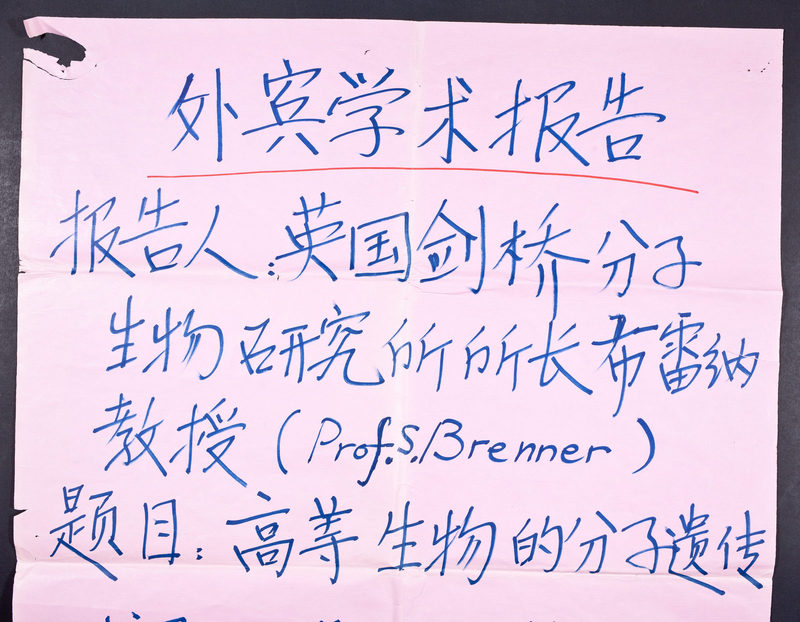 外宾学术报告
报告人:英国剑桥分子
生物研究所所长布雷纳
教授(Prof.S.Brenner)
题目:高等生物的分子遗传